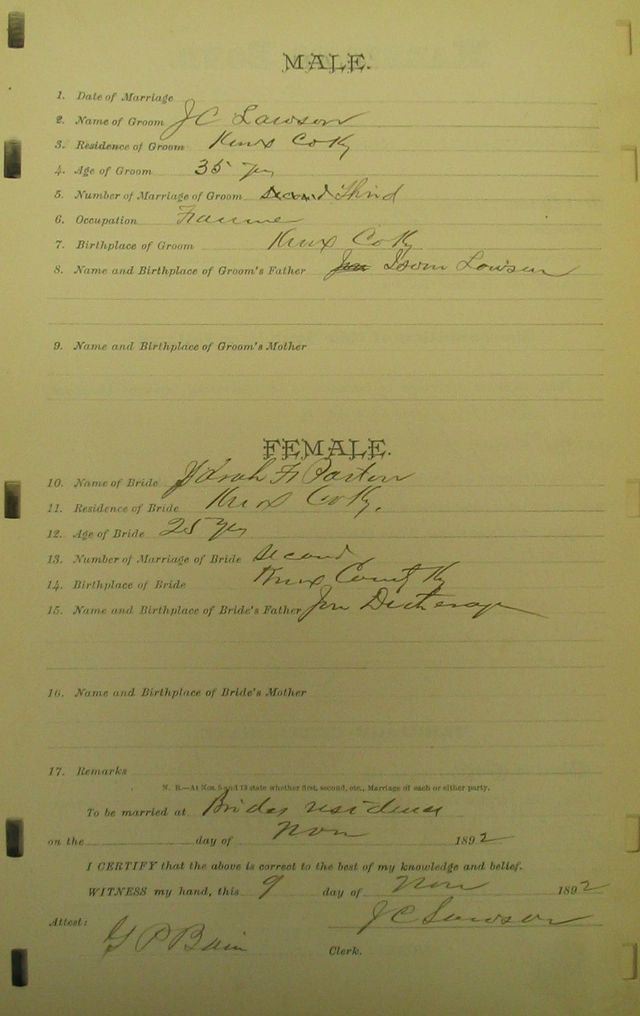 MALE.
1. Date of Marriage
2. Name of Groom J C Lawson
3. Residence of Groom Knox Co Ky
4. Age of Groom 35 yrs
5. Number of Marriage of Groom second Third
6. Occupation
7. Birthplace of Groom Knox Co Ky
8. Name and Birthplace of Groom's Father Isom Lawson
9. Name and Birthplace of Groom's Mother
FEMALE.
10. Name of Bride
11. Residence of Bride Knox Co Ky.
12. Age of Bride 25 yrs
13. Number of Marriage of Bride second
14. Birthplace of Bride Knox County Ky
15. Name and Birthplace of Bride's Father
16. Name and Birthplace of Bride's Mother
17. Remarks
N. B.—At Nos. 5 and 13 state whether first, second, etc., Marriage of each or either party.
To be married at Brides residence
on the day of Nov 1892
I CERTIFY that the above is correct to the best of my knowledge and belief.
WITNESS my hand, this 9 day of Nov 1892
Attest: J C Lawson
G P Bain Clerk.